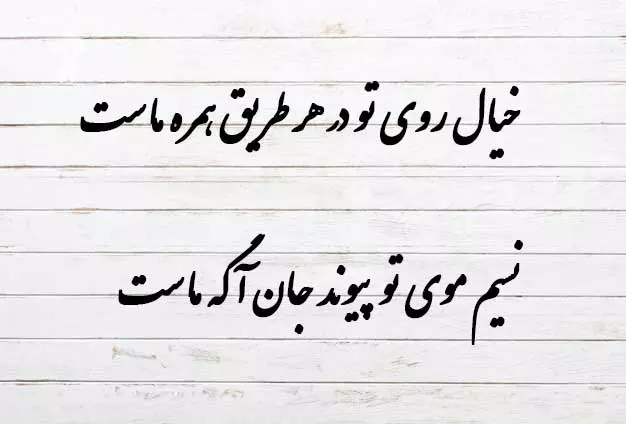 خیال روی تو در هر طریق همره ماست
نسیم موی تو پیوند جان آگه ماست